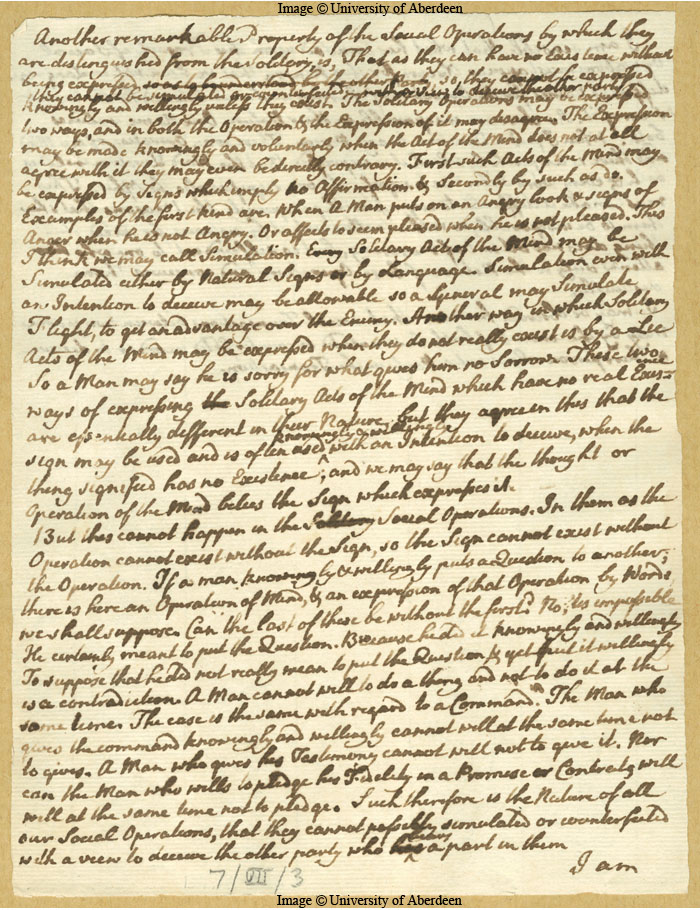 Image © University of Aberdeen
Another remarkable Property of the Social Operations by which they
are distinguished from the Solitary, is, That as they can have no Existence without
being expressed so as to be understood by the other Party, so, they cannot be expressed
they cannot be with a view to deceive the other party
knowingly and willingly unless they exist. The Solitary Operations may be expressed
two ways, and in both the Operation & the Expression of it may disagree. The Expression
may be made knowingly and voluntarly when the Act of the Mind does not at all
agree with it they may even be directly contrary. First such Acts of the Mind may
be expressed by Signs which imply no Affirmation & Secondly by such as do.
Examples of the first kind are. When A Man puts on an Angry look & signs of
Anger when he is not Angry. Or affects to seem pleased when he is not pleased. This
I think we may call Simulation. Every Solitary Act of the Mind may be
Simulated either by Natural Signs or by Language. Simulation even with
an Intention to deceive may be allowable so a General may Simulate
Flight, to get an advantage over the Enemy. Another way in which Solitary
Acts of the Mind may be expressed when they do not really exist is by a Lie
So a Man may say he is sorry for what gives him no Sorrow. These two
ways of expressing the Solitary Acts of the Mind which have no real Exis=tence
are essentially different in their Nature, but they agree in this that the
knowingly & willingly
sign may be used and is often used with an Intention to deceive, when the
thing signified has no Existence; and we may say that the thought or
Operation of the Mind belies the Sign which expresses it.
But this cannot happen in the Solitary Social Operations. In them as the
Operation cannot exist without the Sign, so the Sign cannot exist without
the Operation. If a man knowingly & willingly puts a Question to another;
there is here an Operation of Mind, & an expression of that Operation by Words
we shall suppose. Can the last of these be without the first? No, tis impossible
He certainly meant to put the Question. Because he did it knowingly and willingly
To suppose that he did not really mean to put the Question & yet put it willingly
is a contradiction. A Man cannot will to do a thing and not to do it at the
same time. The case is the same with regard to a Command. The Man who
gives the command knowingly and willingly cannot will at the same time not
to give. A Man who gives his Testimony cannot will not to give it. Nor
can the Man who wills to pledge his Fidelity in a Promise or Contract, will
will at the same time not to pledge. Such therefore is the Nature of all
our Social Operations, that they cannot possibly simulated or counterfeited
with a view to deceive the other party who a part in them
I am
7/III/3
Image © University of Aberdeen